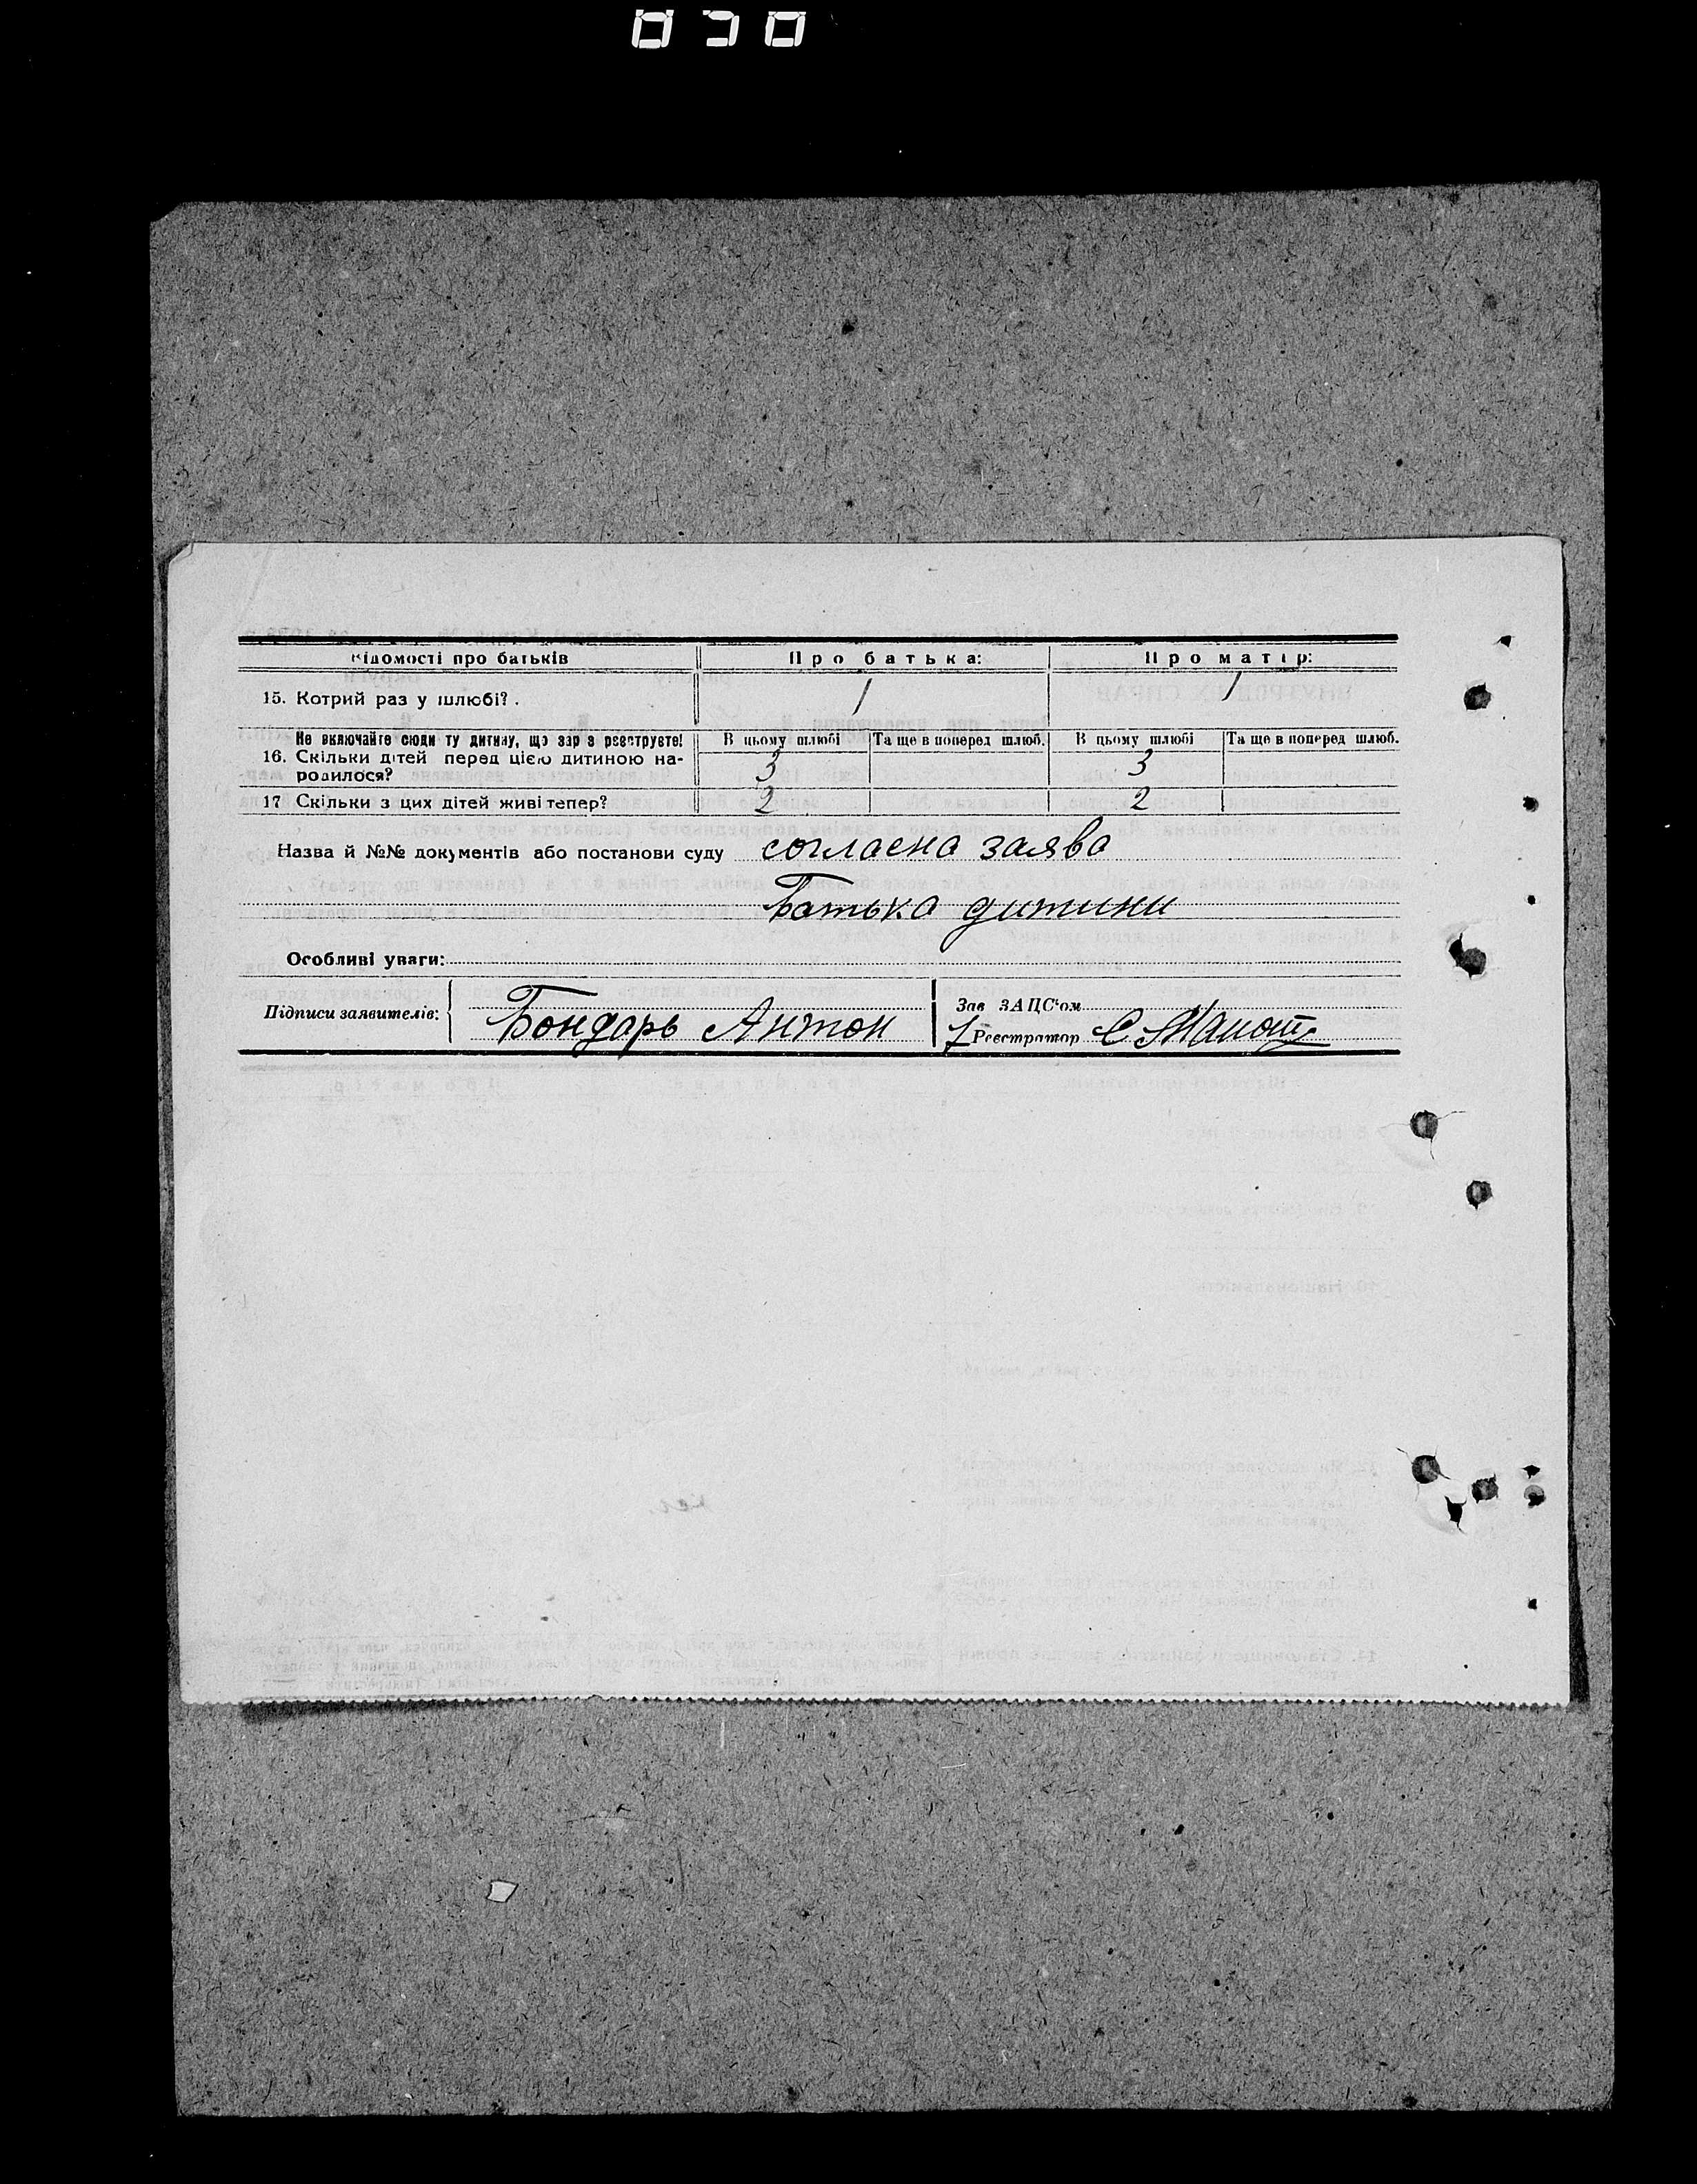 Відомості про батьків Про батька: Про матір:
15. Котрий раз у шлюбі? . 1 1
Не включайте сюди ту дитину, що зараз реєструєте! В цьому шлюбі Та ще в поперед шлюб. В цьому шлюбі Та ще в поперед шлюб.
16. Скільки дітей перед цією дитиною на-
родилося? 3 3
17 Скільки з цих дітей живі тепер? 2 2
Назва й №№ документів або постанови суду согласна заява
Батька дитини
Особливі уваги:
Підписи заявителів: Бондарь Антон
Зав ЗАЦС'ом
Реєстратор